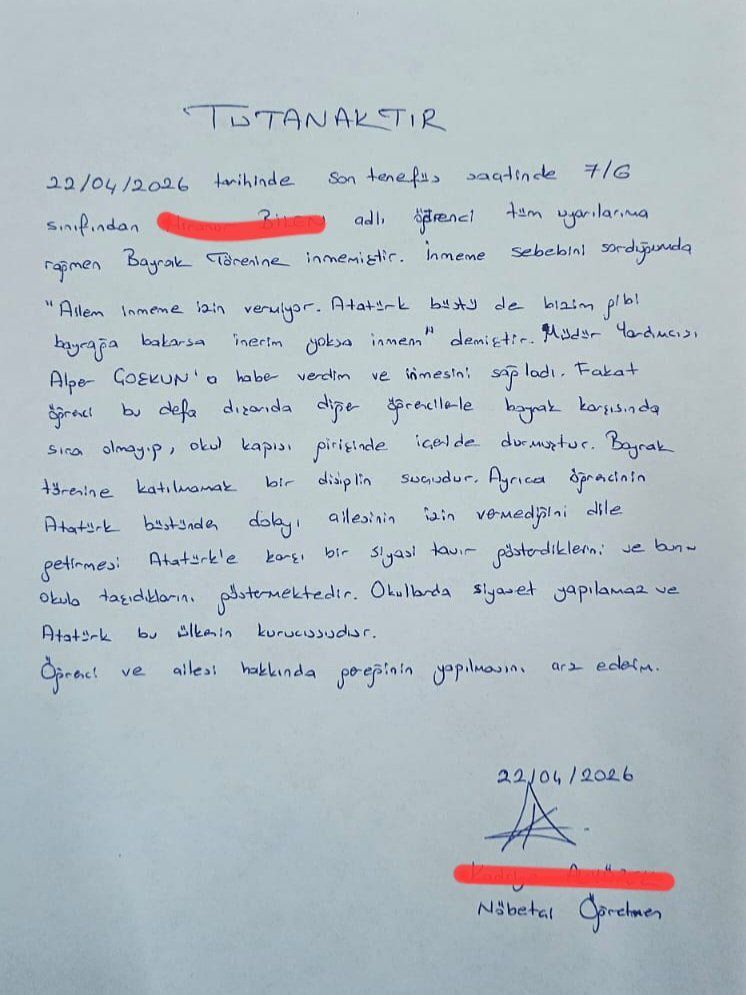 TUTANAKTIR
22/04/2026 tarihinde son tenefüs saatinde 7/G
sınıfından adlı öğrenci tüm uyarılarıma
rağmen Bayrak Törenine inmemiştir. İnmeme sebebini sorduğumda
"Ailem inmeme izin vermiyor. Atatürk büstü de bizim gibi
bayrağa bakarsa inerim yoksa inmem" demiştir. Müdür Yardımcısı
Alper COŞKUN'a haber verdim ve inmesini sağladı. Fakat
öğrenci bu defa dışarıda diğer öğrencilerle bayrak karşısında
sıra olmayıp, okul kapısı girişinde içerde durmuştur. Bayrak
törenine katılmamak bir disiplin suçudur. Ayrıca öğrencinin
Atatürk büstünden dolayı ailesinin izin vermediğini dile
getirmesi Atatürk'e karşı bir siyasi tavır gösterdiklerini ve bunu
okula taşıdıklarını göstermektedir. Okullarda siyaset yapılamaz ve
Atatürk bu ülkenin kurucusudur.
Öğrenci ve ailesi hakkında gereğinin yapılmasını arz ederim.
22/04/2026
Nöbetçi Öğretmen